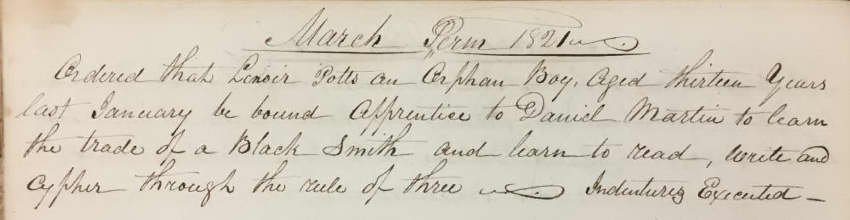 March Term 1821
Ordered that Lenoir Potts an Orphan Boy, aged thirteen Years
last January be bound apprentice to Daniel Martin to learn
the trade of a Black Smith and learn to read, write and
Cypher through the rule of three Indentures Executed –